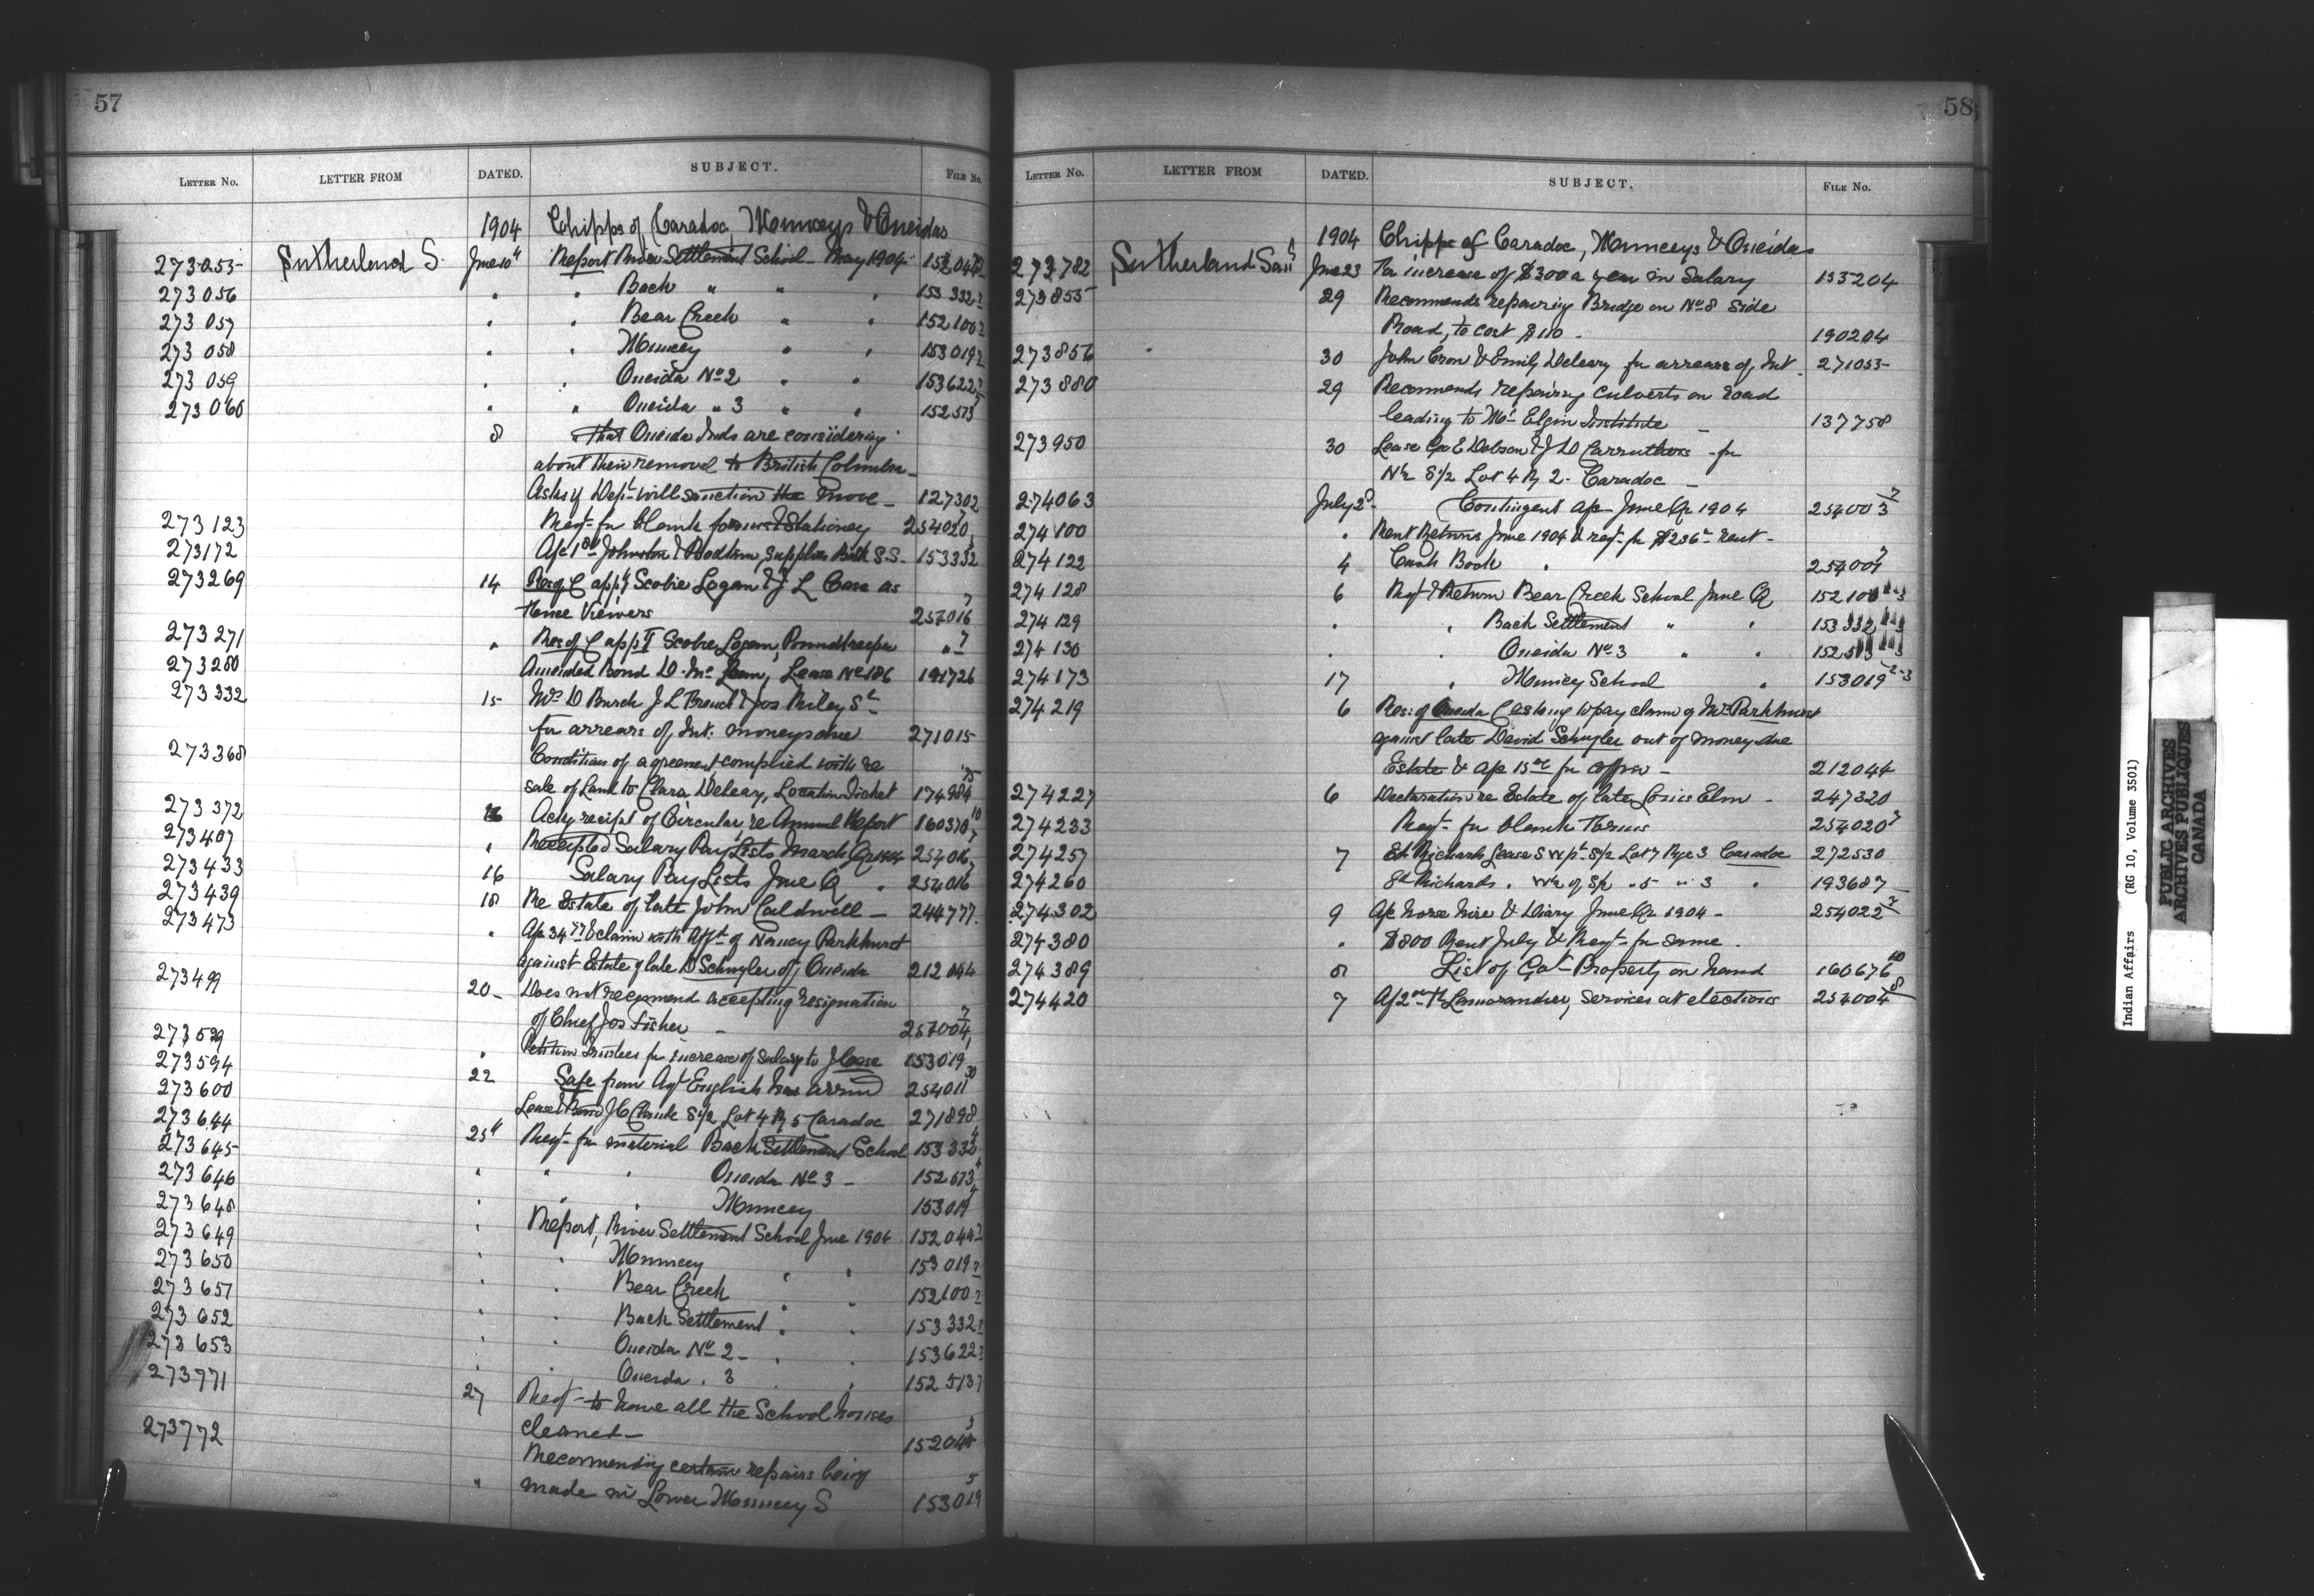 57
LETTER NO. LETTER FROM DATED. SUBJECT. FILE NO.
1904 Chipps of Caradoc, Munceys & Oneidas
273055 Sutherland S. June 10th Report River Settlement School May 1904
273056 " " Back " " " 153332
273057 " " Bear Creek " " 152100
273058 " " Muncey " " 153019
273059 " " Oneida No 2 " " 153622
273060 " " Oneida " 3 " " 152513
8 That Oneida Inds are considering
about their removal to British Columbia
Asks if Dept will sanction the move 127302
273123 Reqt for blank forms & Stationery 254020
273172 A/c Johnston & Bodkin, supplies Back S.S. 153332
273269 14 Res of C appt Scobie Logan & J L Case as
Fence Viewers 254016
273271 " Res of C appt Scobie Logan, Poundkeeper "
273280 Amended Bond D. Mc Lean, Lease No 186 191726
273332 15 Mrs D Burch J L Breuch & Jos Riley Sr
for arrears of Int: moneys due 271015
273368 Conditions of agreement complied with re
sale of Land to Clara Deleary, Location Ticket 174984
273372 16 Ackg receipt of Circular re Annual Report 160370
273407 " Receipted Salary Pay Lists March Qr 1904 254016
273433 16 Salary Pay Lists June Q " 254016
273439 18 Re Estate of late John Caldwell 244777
273473 " A/c 34 & claim with Afft of Nancy Parkhurst
against Estate of late D Schuyler of Oneida 212044
273499 20 Does not recommend accepting resignation
of Chief Jos Fisher 254004
273529 " Petition Trustees for increase of salary to J Case 153019
273594 22 Safe from Agt English has arrived 254011
273600 Lease & Bond J C Clarke S 1/2 Lot 4 R 5 Caradoc 271898
273644 25th Reqt for material Back Settlement School 153332
273645 " " " Oneida No 3 152513
273646 " " " Muncey 153019
273648 " Report, River Settlement School June 1904 152044
273649 " " Muncey " " 153019
273650 " " Bear Creek " " 152100
273651 " " Back Settlement " " 153332
273652 " " Oneida No 2 " " 153622
273653 " " Oneida " 3 " 152513
273771 27 Reqt to have all the School houses
cleaned 152044
273772 Recommending certain repairs being
" made in Lower Muncey S 153019
58
LETTER NO. LETTER FROM DATED. SUBJECT. FILE NO.
1904 Chipps of Caradoc, Munceys & Oneidas
273782 Sutherland June 23 For increase of $300 a year in Salary 155204
273855 29 Recommends repairing Bridge on No 8 Side
Road, to cost $110. 190204
273856 30 John Cron & Emily Deleary for arrears of Int. 271055
273880 29 Recommends repairing culverts on road
leading to Mt Elgin Institute 137758
273950 30 Lease Geo E Dobson & J D Carruthers for
N 1/2 S 1/2 Lot 4 R 2. Caradoc
274063 July 2 Contingent A/c June Qr 1904 254003
274100 " Rent Returns June 1904 & reqt for $236 rent
274122 4 Cash Book " 254007
274128 6 Rept & Return Bear Creek School June Q 152100
274129 " " Back Settlement " " 153332
274130 " " Oneida No 3 " " 152513
274173 17 " Muncey School " 153019
274219 6 Res: of Oneida C asking to pay claim of Mrs Parkhurst
against late David Schuyler out of money due
Estate & A/c 15 for coffin 212044
274227 6 Declaration re Estate of late Elm 247320
274233 Reqt for blank Forms 254020
274257 7 Richards Lease S W pt S 1/2 Lot 7 Rge 3 Caradoc 272530
274260 Ed Richards " W 1/2 of S 1/2 " 5 " 3 " 193687
274302 9 A/c horse hire & Diary June Qr 1904 254022
274380 " $800 Rent July & Reqt for same.
274389 8 List of Govt Property on hand 160676
274420 7 A/c 2 Lamorandier, services at elections 254004
Indian Affairs (RG 10, Volume 3501)
PUBLIC ARCHIVES
ARCHIVES PUBLIQUES
CANADA